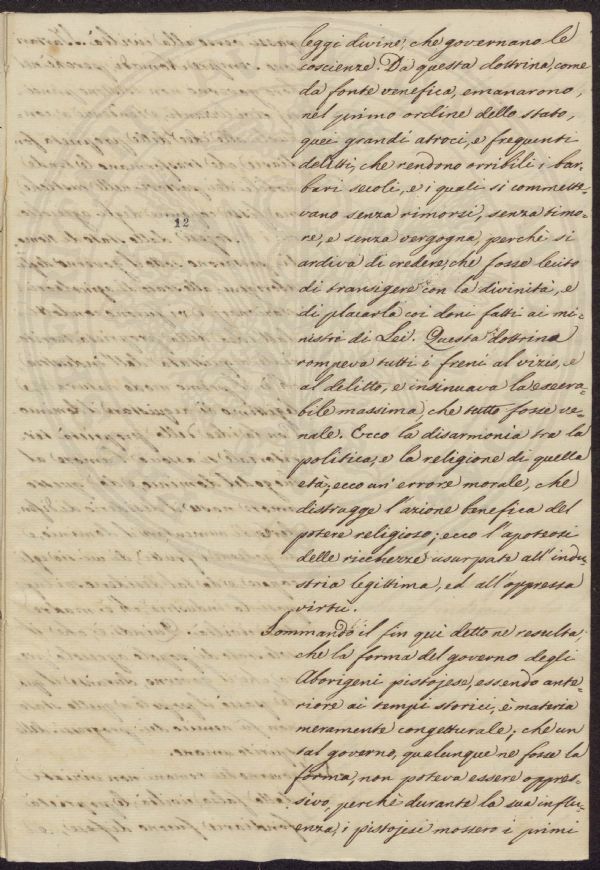 leggi divine, che governano le
coscienze. Da questa dottrina, come
da fonte venefica, emanarono,
nel primo ordine dello stato,
quei grandi atroci, e frequenti
delitti, che rendono orribili i bar-
bari secoli, e i quali si commette-
vano senza rimorsi, senza timo-
re, e senza vergogna, perchè si
ardiva di credere, che fosse lecito
di transigere con la divinità, e
di placarla coi doni fatti ai mi-
nistri di Lei. Questa dottrina
rompeva tutti i freni al vizio, e
al delitto, e insinuava la esecra-
bile massima, che tutto fosse ve-
nale. Ecco la disarmonia tra la
politica, e la religione di quella
età; ecco un'errore morale, che
distrugge l'azione benefica del
potere religioso; ecco l'apoteosi
delle ricchezze usurpate all'indu-
stria legittima, ed all'oppressa
virtù.
Sommando il fin quì detto ne resulta:
che la forma del governo degli
Aborigeni pistojese, essendo ante-
riore ai tempi storici, è materia
meramente congetturale; che un
tal governo, qualunque ne fosse la
forma, non poteva essere oppres-
sivo, perchè durante la sua influ-
enza, i pistojesi mossero i primi
12